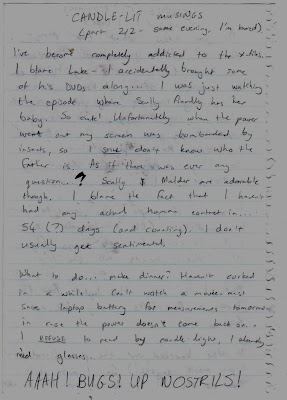 CANDLE-LIT MUSINGS
(part 2/2 - same evening, I'm bored)
I've become completely addicted to the x-files.
I blame Luke - I accidentally brought some
of his DVDs along... I was just watching
the episode where Scully finally has her
baby. So cute! Unfortunately when the power
went out my screen was bombarded by
insects, so I still don't know who the
father is. As if there was ever any
question...? Scully & Mulder are adorable
though. I blame the fact that I haven't
had any actual human contact in...
54 (?) days (and counting). I don't
usually get sentimental.
What to do... make dinner? Haven't cooked
in a while. Can't watch a movie - must
save laptop battery for measurements tomorrow
in case the power doesn't come back on...
I REFUSE to read by candle light, I already
need glasses...
AAAH! BUGS! UP NOSTRILS!